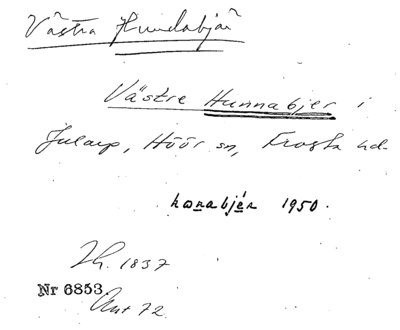 Västra Hundabjär
Västre Hunnabjer i
Jularp, Höör sn, Frosta hd.
hanabjér 1950.
Lh. 1837
Nr 6853
Ant 72